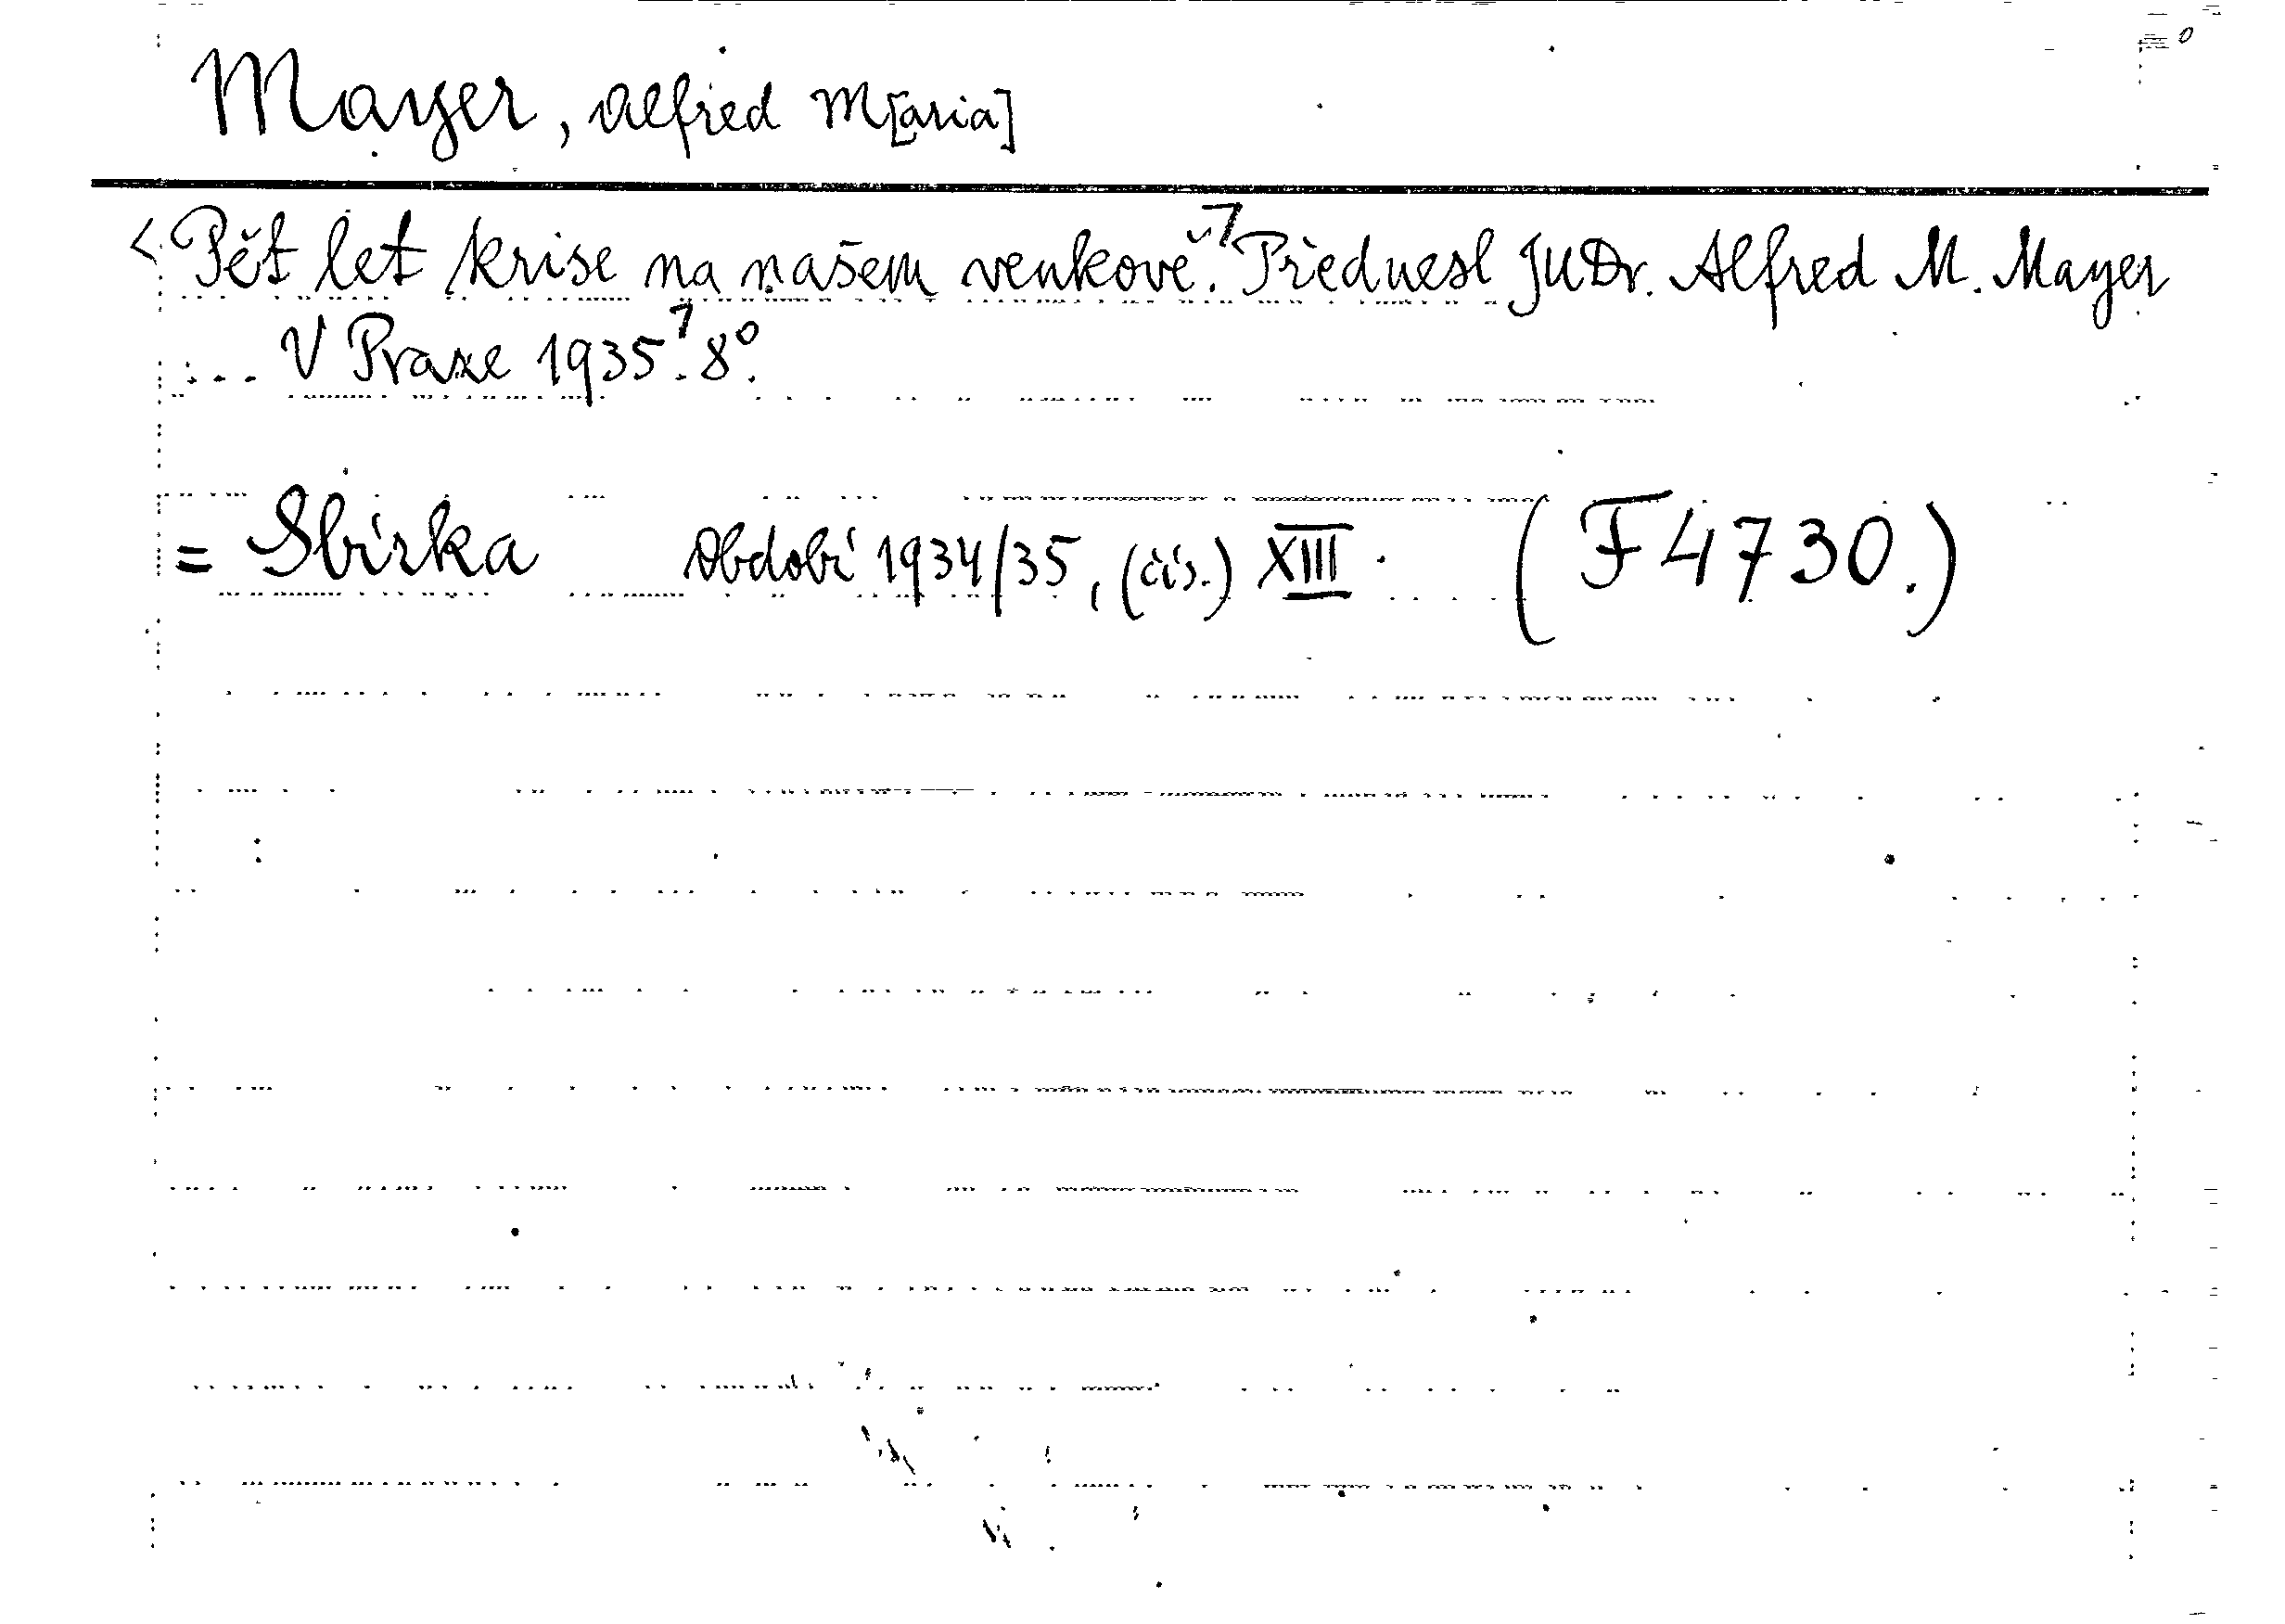 Mayer, Alfred M[aria]
<Pět let krise na našem venkově.⁊ Přednesl JUDr. Alfred M. Mayer
... V Praze 1935⁊. 8°.
= Sbírka období 1934/35, (čís.) XIII. (F 4730.)